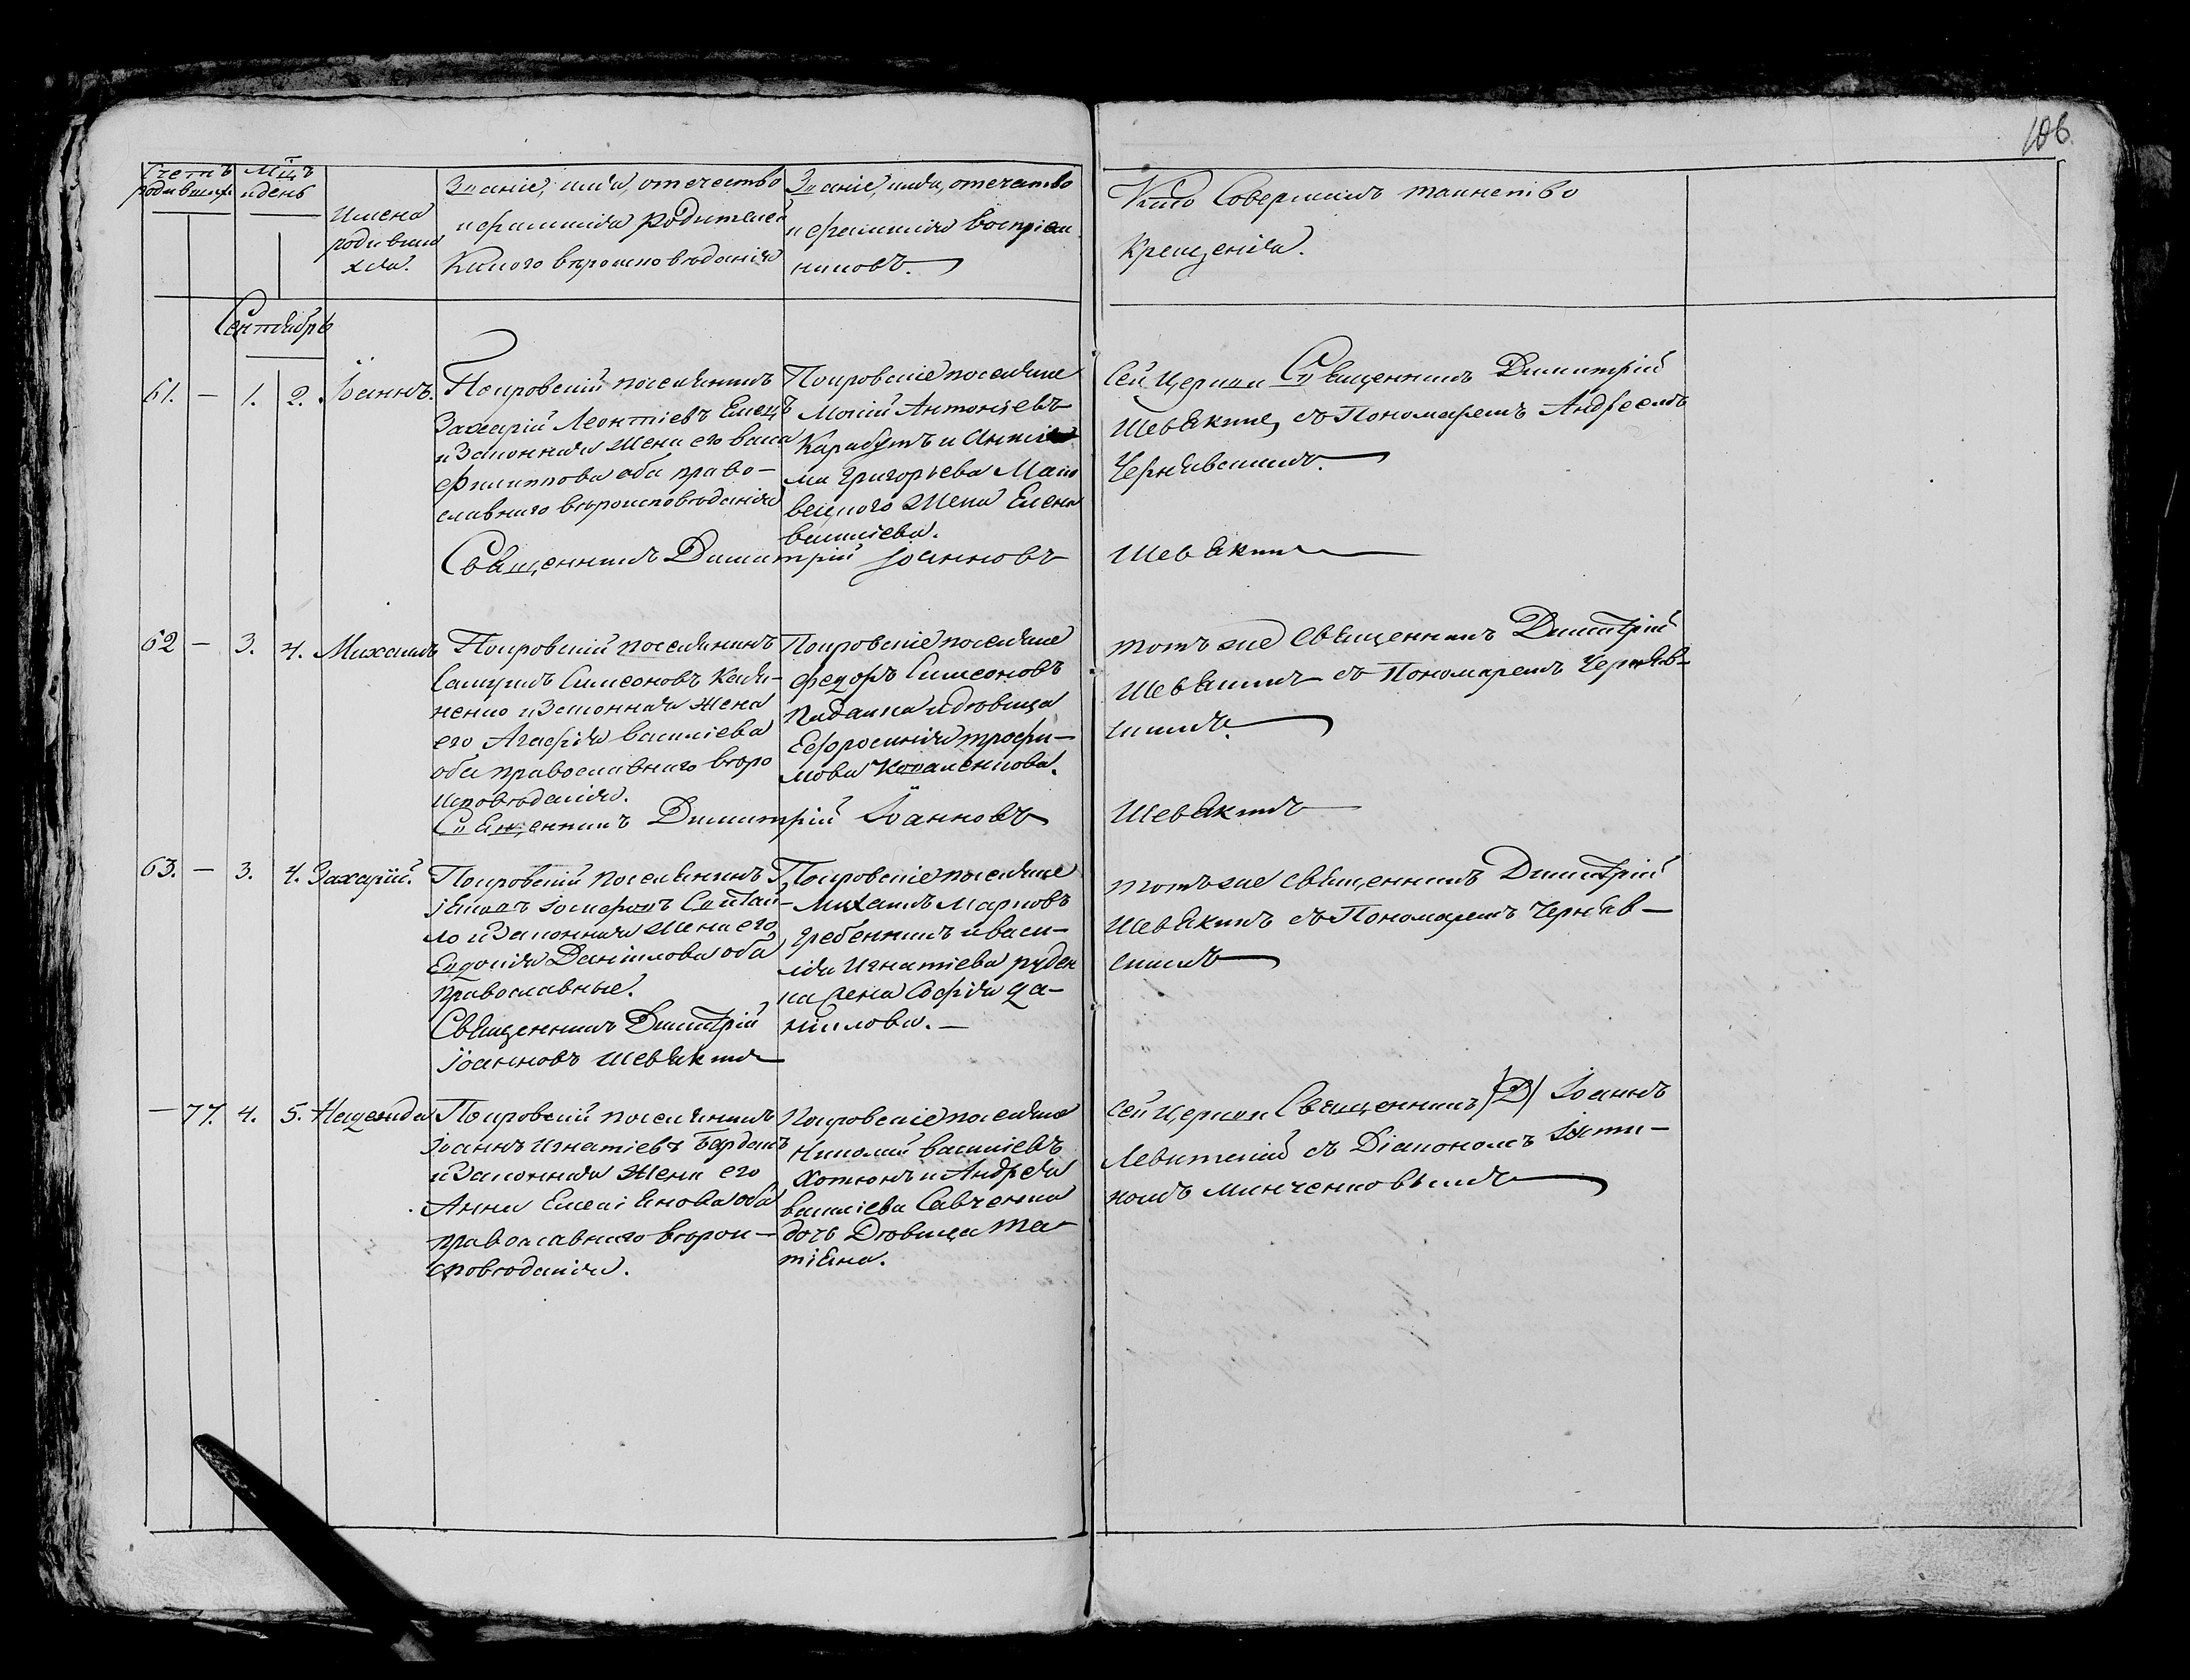 106.
Счетъ
родившихся
Мцъ
и день
Имена
родивши
хся.
Званіе, имя, отечество
и фамилія родителей
какого вѣроисповѣданія
Званіе, имя, отечество
и фамилія воспріем
никовъ.
Кто совершилъ таинство
крещенія.
Сентябрь
61. — 1. 2. Іоаннъ.
Покровскій поселянинъ
Захарій Леонтіевъ Емецъ
и законная жена его Васса
Филиппова оба право-
славнаго вѣроисповѣданія
Покровскіе поселяне
Мокій Антоніевъ
Карабутъ и
Григорьева
жена Елена
Василіева.
Сей церкви Священникъ Димитрій
Шевякинъ, съ Пономаремъ Андреемъ
Чернявскимъ.
Священникъ Димитрій Іоанновъ Шевякинъ
62 — 3. 4. Михаилъ
Покровскій поселянинъ
Самуилъ Симеоновъ
и законная жена
его Агафія Василіева
оба православнаго вѣро
исповѣданія.
Покровскіе поселяне
Федоръ Симеоновъ
и дѣвица
Евфросинія Трофи-
мова Коваленкова.
тотъ же священникъ Димитрій
Шевякинъ съ Пономаремъ Черняв-
скимъ.
Священникъ Димитрій Іоанновъ Шевякинъ
63. — 3. 4. Захарій.
Покровскій поселянинъ
Іаковъ Іосифовъ
ло и законная жена его
Евдокія Даніилова оба
православные.
Священникъ Димитрій
Іоанновъ Шевякинъ
Покровскіе поселяне
Михаилъ Марковъ
Гребенникъ и Васи-
лія Игнатіева Руден
ка жена Софія Да-
ніилова. —
тотъ же священникъ Димитрій
Шевякинъ съ Пономаремъ Черняв-
скимъ
— 77. 4. 5.
Покровскій поселянинъ
Іоаннъ Игнатіевъ Бардакъ
и законная жена его
Анна Емеліянова оба
православнаго вѣрои-
сповѣданія.
Покровскіе поселяне
Николай Василіевъ
Хотюнъ и Андрея
Василіева Савченка
дочь дѣвица Та-
тіяна.
Сей церкви Священникъ Іоаннъ
Левитскій съ Діакономъ Іоанни-
комъ Минченковымъ